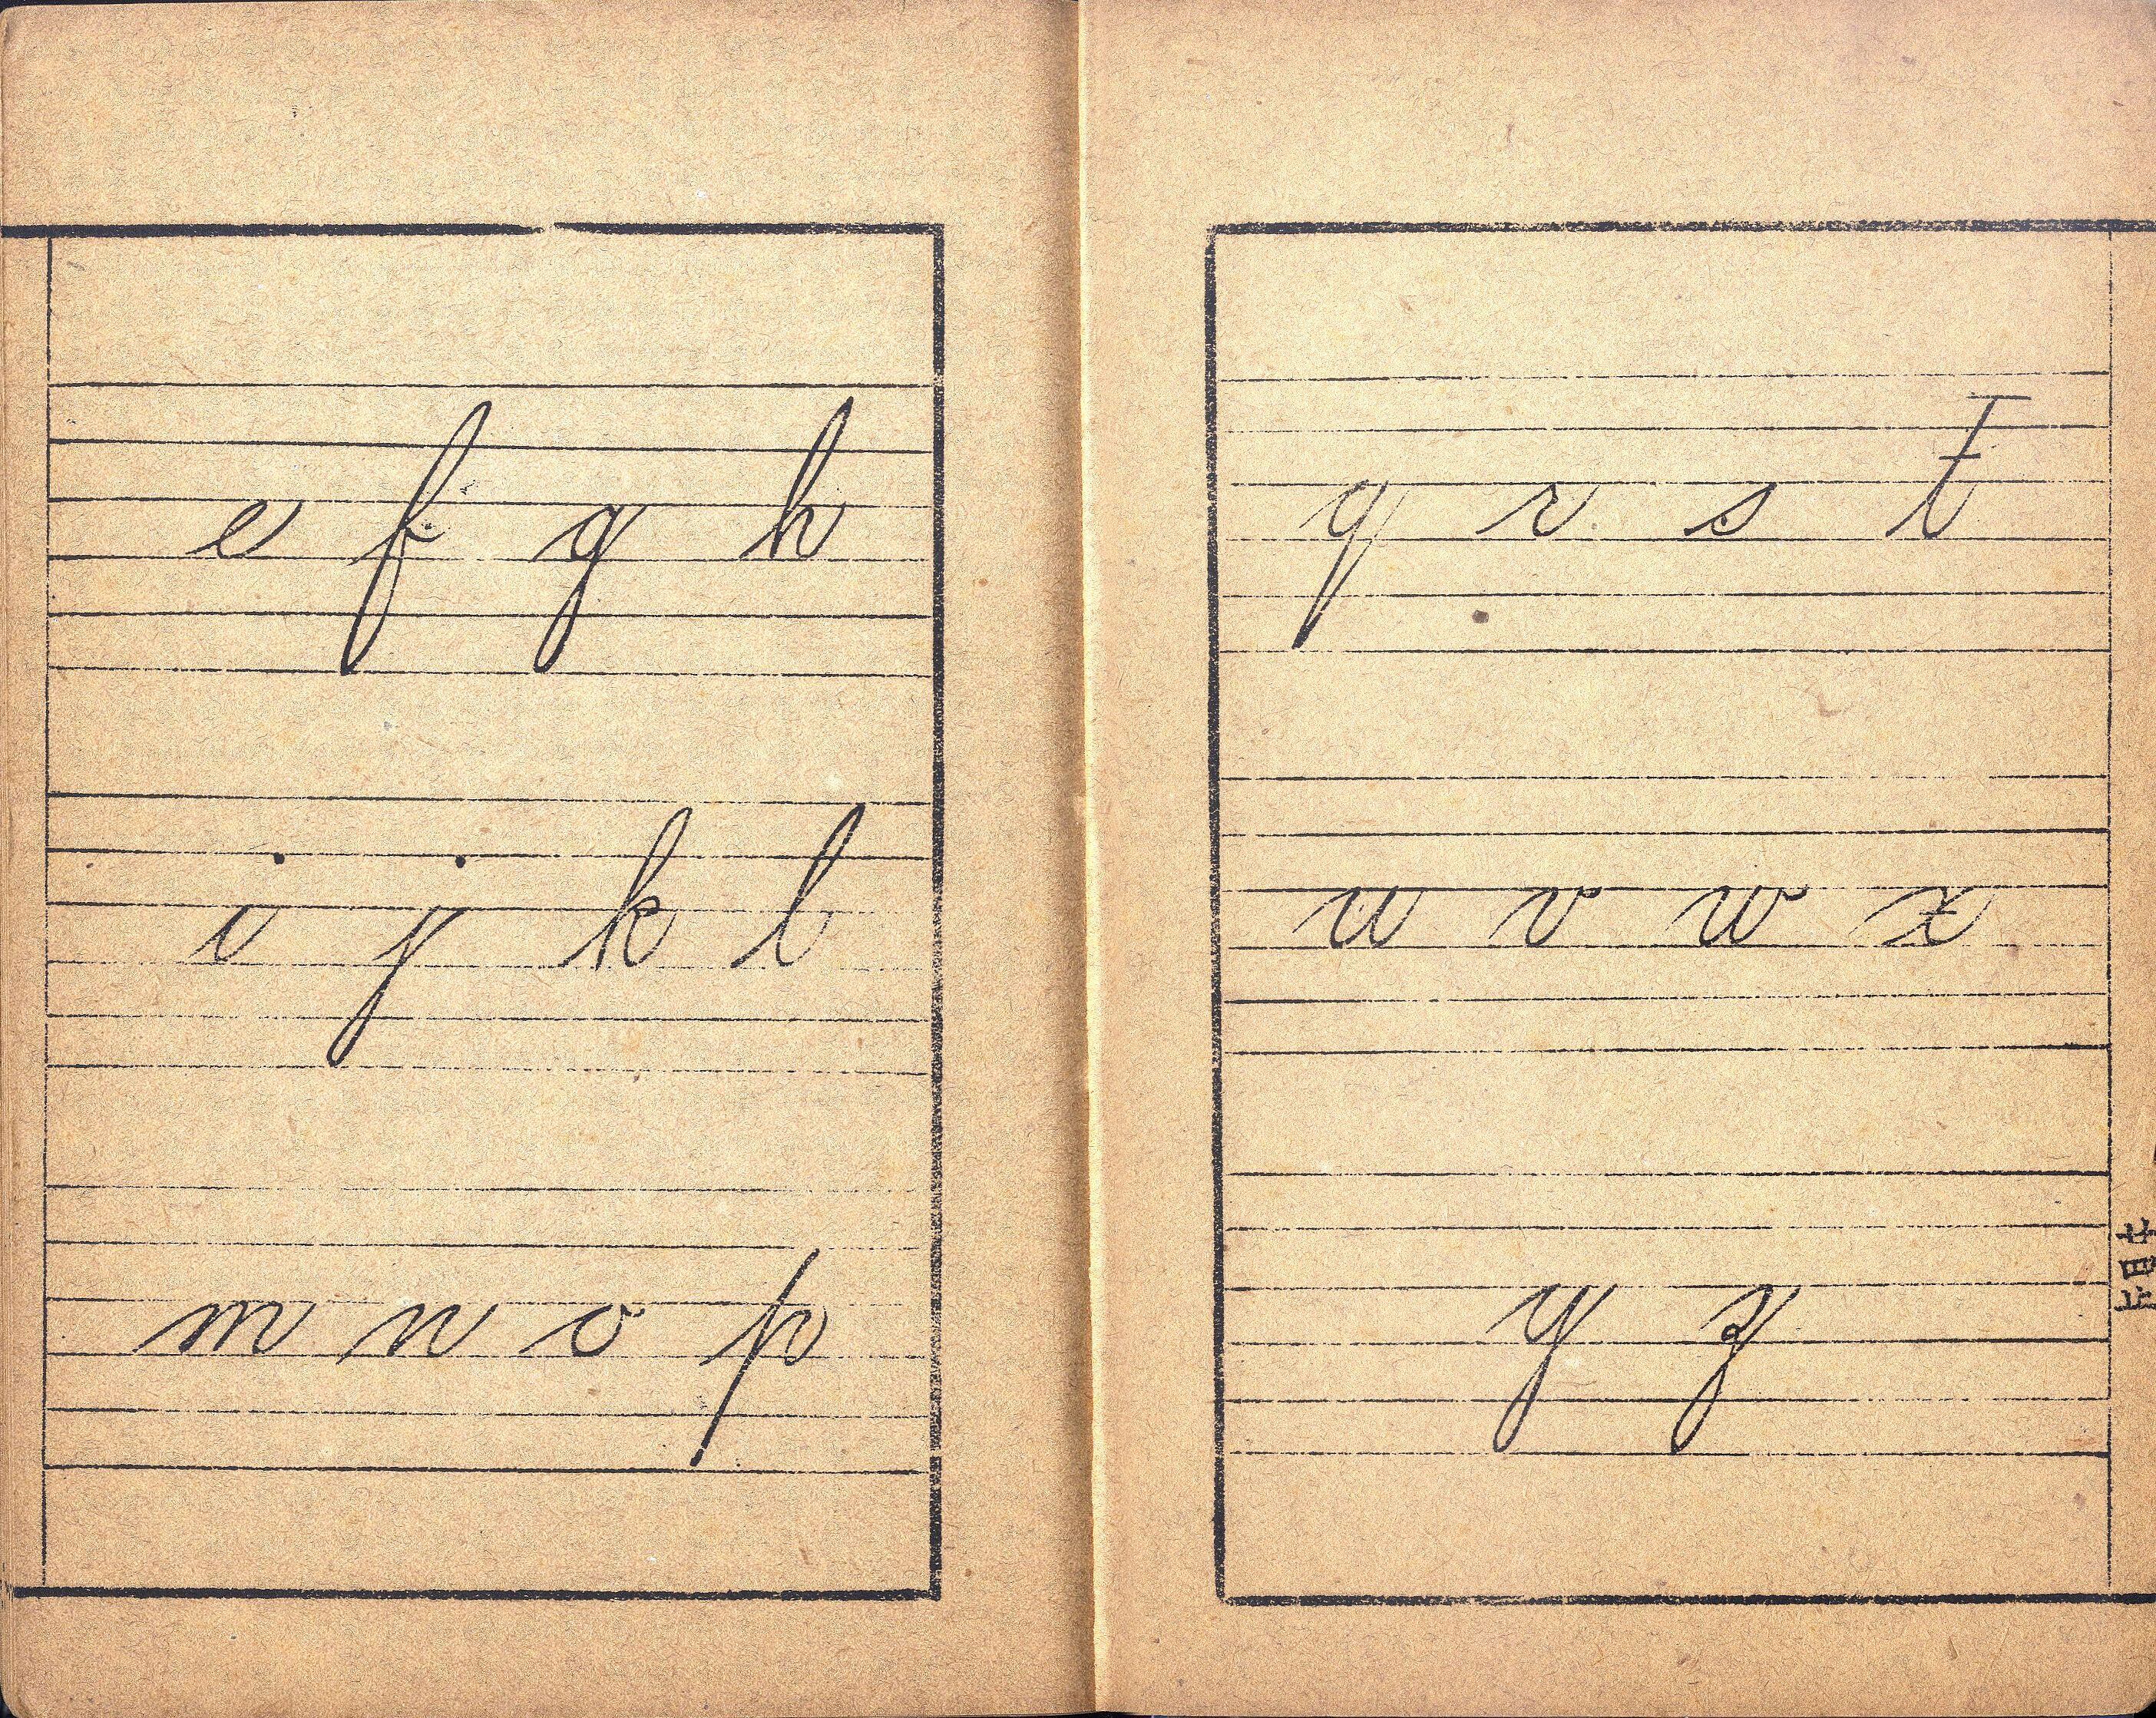 e f g h
i j k l
m n o p
q r s t
u v w x
y z